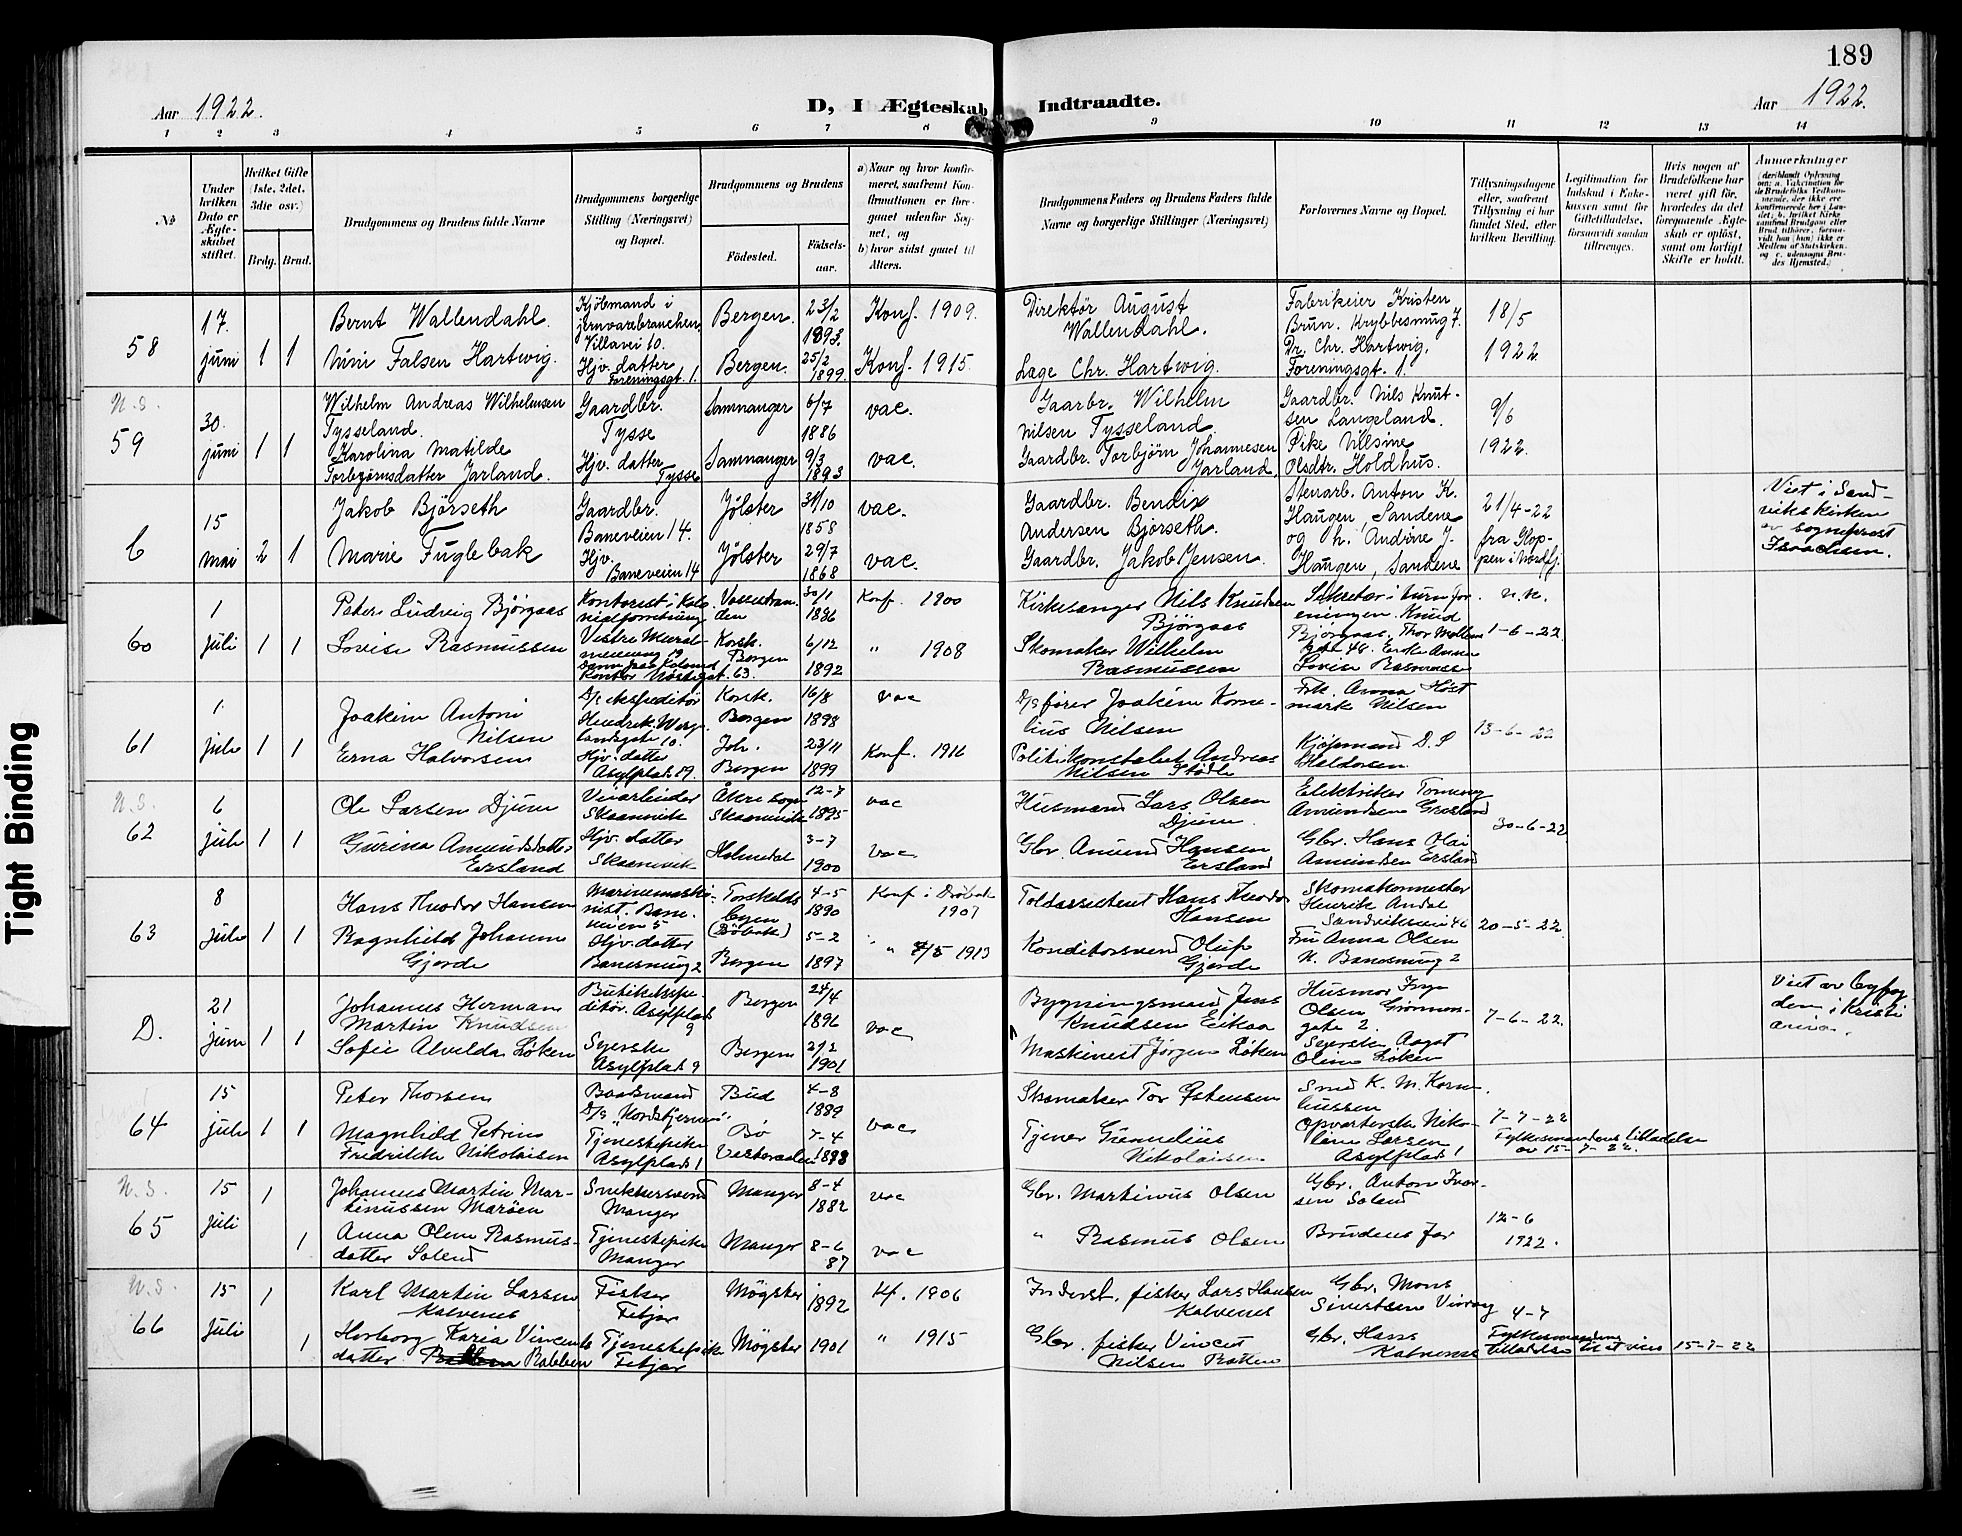 189
Aar 1922.
D, I Ægteskab Indtraadte.
Aar 1922.
1 2 3 4 5 6 7 8 9 10 11 12 13 14
No
Under hvilken Dato er Ægteskabet stiftet.
Hvilket Gifte (1ste, 2det, 3die osv.)
Brdg. Brud.
Brudgommens og Brudens fulde Navne
Brudgommens borgerlige Stilling (Næringsvei) og Bopæl.
Brudgommens og Brudens
Födested.
Födselsaar.
a) Naar og hvor konfirmeret, saafremt Konfirmationen er foregaaet udenfor Sognet, og
b) hvor sidst gaaet til Alters.
Brudgommens Faders og Brudens Faders fulde Navne og borgerlige Stillinger (Næringsvei)
Forlovernes Navne og Bopæl.
Tillysningsdagene eller, saafremt Tillysning ei har fundet Sted, efter hvilken Bevilling.
Legitimation for Indskud i Enkekassen samt for Giftetilladelse, forsaavidt saadan tiltrænges.
Hvis nogen af Brudefolkene har været gift før, hvordedes da det foregaaende Ægteskab er oplöst, samt om lovligt Skifte er holdt.
Anmærkninger
58
17. juni
1 1
Bernt Wallendahl.
Kjöbmand i jernvarebranchen, Villavei 10.
Bergen.
23/2 1893.
Konf. 1909.
Direktör August Wallendahl.
Fabrikeier Kristen Brun. Krybbesmug 7.
18/5 1922
Nini Falsen Hartwig.
Hjv. datter Foreningsgt. 1.
Bergen.
25/2 1899.
Konf. 1915.
Læge Chr. Hartwig.
Dr. Chr. Hartwig. Foreningsgt. 1.
U.S.
59
30. juni
1 1
Wilhelm Andreas Wilhelmsen Tysseland.
Gaardbr. Tysse
Samnanger
6/7 1886
vac.
Gaarbr. Wilhelm Nilsen Tysseland.
Gaardbr. Nils Knutsen Langeland.
9/6 1922.
Karolina Matilde Torbjørnsdatter Jarland.
Hjv. datter Tysse
Samnanger
9/3 1893
vac.
Gaardbr. Torbjörn Johannesen Jarland.
Pike Nilsine Olsdtr. Holdhus.
C
15 mai
2 1
Jakob Björseth
Gaardbr. Baneveien 14.
Jølster
31/10 1858
vac.
Gaardbr. Bendix Andersen Björseth.
Stenarb. Anton K. Haugen, Sandene
21/4-22 fra Gloppen i Nordfj.
Viet i Sandvikskirken av sogneprest Isachsen.
Marie Fuglebak
Hjv. Baneveien 14
Jølster
29/7 1868
vac.
Gaardbr. Jakob Jensen.
og h. Andrine J. Haugen, Sandene
60
1 juli
1 1
Peter Ludvig Bjørgaas
Kontorist i Kolonialforretning
Vossestranden
30/1 1886
Konf. 1900
Kirkesanger Nils Knudsen Bjørgaas
Sekretær i turnforeningen Knud Bjørgaas. Thor Møllem
1-6-22
Lovise Rasmussen
Korsk. Bergen
6/12 1892
" 1908
Skomaker Wilhelm Rasmussen
Lovise Rasmussen
61
1. juli
1 1
Joakim Antoni Nilsen
D/s ekspeditör Hendrik Wergelandsgate 10.
Korsk. Bergen
16/8 1898
vac
D/s fører Joakim Kornelius Nilsen
Frk. Anna Høstmark Nilsen
13-6-22
Erna Halvorsen
Hjv. datter Asylplads 19.
Joh. Bergen
23/11 1899
Konf. 1916
Politikonstabel Andreas Nilsen
Kjøpmand D. S
U.S.
62
6 juli
1 1
Ole Larsen Djuve
Veiarbeider Skaanevik
Åkre sogn Skaanevik
12-7 1895
vac
Husmand Lars Olsen Djuve.
Elektriker Amundsen
30-6-22
Gurina Amundsdatter Ersland
Hjv. datter Skaanevik
Holmedal
3-7 1900
Vac
Gbr. Amund Hansen Ersland
Gbr. Hans Olai Amundsen Ersland
63
8 juli
1 1
Hans Theodor Hansen
Marinemaskinist. Baneveien 5
(Dröbak)
4-5 1890
Konf. i Drøbak 1907
Toldassistent Hans Theodor Hansen
Skomakermester Henrik Andal Sandviksveien 46
20-5-22.
Ragnhild Johanne Gjerde
Hjv. datter Banesmug 2
Bergen
5-2 1897
" 4/5 1913
Konditorsvend Oluf Gjerde
Fru Anna Olsen N. Banesmug 2
D.
21 juni
1 1
Johannes Herman Martin Knudsen
Butikekspeditör. Asylplads 9
Bergen
24/4 1896
vac
Bygningsmand Jens Knudsen Eikaa
Husmor Inga Olsen Grønnevogate 2.
7-6-22.
Viet av byfogden i Kristiania.
Sofie Alvilda Løken
Syerske Asylplads 9
Bergen
2/2 1901
Maskinist Jørgen Løken
Syerske Aagot Oline Løken
64
15 juli
1 1
Peter Thorsen
Baadsmand D/s "Nordstjernen"
Bud
4-8 1889
vac
Skomaker Tor Østensen
Smed K. M. Korneliussen
7-7-22
Fylkesmandens tilladelse av 15-7-22.
Magnhild Petrine Fredrikke Nikolaisen
Tjenestepike Asylplads 1
Bø Vesteraalen
7-4 1898
Tjener Nikolaisen
Opvarterske Nikoline Larsen Asylplads 1
U.S.
65
15 juli
1
Johannes Martin Martinussen Marøen
Snekkersvend Manger
Manger
8-4 1882
vac
Gbr. Martinus Olsen
Gbr. Anton Iversen Solend
12-6 1922.
1
Anna Oline Rasmusdatter Solend
Tjenestepike Manger
Manger
8-6 87
vac
" Rasmus Olsen
Brudens far
U.S.
66
15 juli
1
Karl Martin Larsen Kalvenes
Fisker Fitjar
Møgster
1892
Kf. 1906
Inderst. fisker Lars Hansen Kalvenes
Gbr. Mons Sivertsen
4-7
1
Herborg Karia Vincentsdatter Rabben
Tjenestepike Fitjar
Møgster
1901
" 1915
Gbr. fisker Vincent Nilsen
Gbr. Hans Kalvenes
Fylkesmandens tilladelse til at vies 15-7-22
Tight Binding